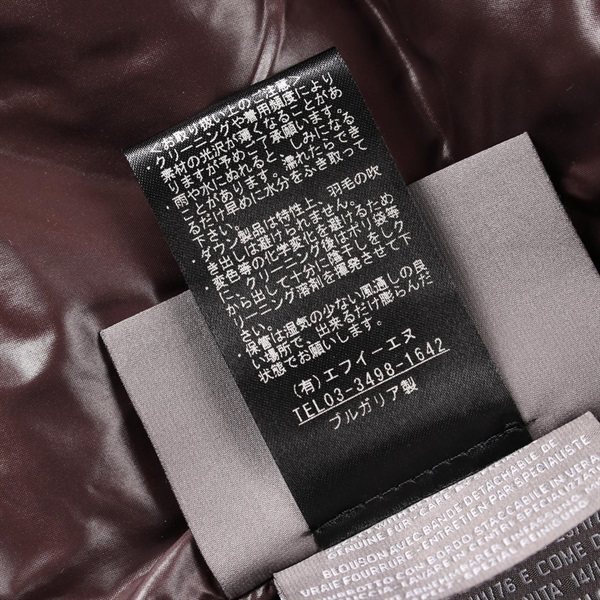 <お取り扱い上のご注意>
・クリーニングや着用頻度により
素材の光沢が薄くなることがあ
りますが予めご承願います。
雨や水にぬれると、しみになる
ことがあります。濡れたらでき
るだけ早めに水分をふき取って
下さい。
・ダウン製品は特性上、羽毛の吹
き出しは避けられません。
・変色等の化学変化を避けるため
に、クリーニング後はポリ袋等
から出して十分に陰干しをしク
リーニング溶剤を揮発させて下
さい。
・保管は湿気の少ない風通しの良
い場所で、出来るだけ膨らんだ
状態でお願いします。
(有)エフイーエヌ
TEL03-3498-1642
ブルガリア製
GENUINE FUR-CARE BY
BLOUSON AVEC BANDE DETACHABLE DE
VRAIE FOURRURE-ENTRETIEN PAR SPECIALISTE
CON BORDO STACCABILE IN VERA
E COME D